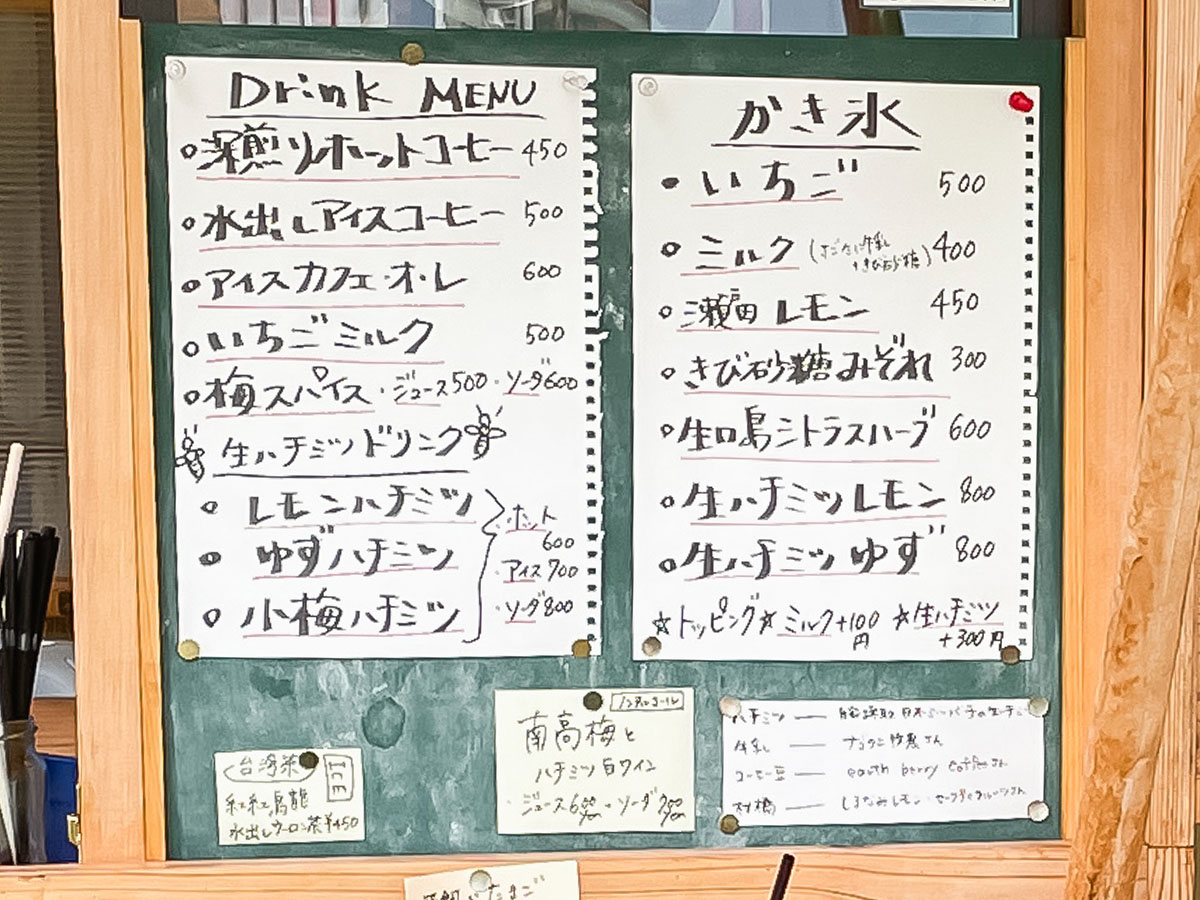 Drink MENU
深煎リホットコーヒー 450
水出しアイスコーヒー 500
アイスカフェ・オ・レ 600
いちごミルク 500
梅スパイス・ジュース500・ソーダ600
生ハチミツドリンク
レモンハチミツ
ゆずハチミツ
小梅ハチミツ
・ホット
600
・アイス700
・ソーダ800
かき氷
いちご 500
ミルク 400
きび砂糖)
瀬戸田レモン 450
きび砂糖みぞれ 300
生口島シトラスハーブ 600
生ハチミツレモン 800
生ハチミツゆず 800
☆トッピング☆ミルク+100円 ☆生ハチミツ+300円
台湾茶 ICE
紅烏龍
水出しウーロン茶¥450
ノンアルコール
南高梅と
ハチミツ白ワイン
・ジュース600yen・ソーダ700yen
ハチミツ — 日本ミツバチの生ハチミツ
牛乳 — さん
コーヒー豆 — earth berry coffeeさん
柑橘 — しまなみレモン・さん
たまご